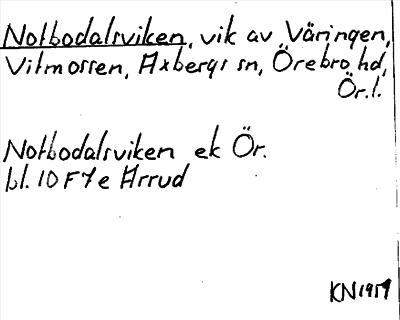 Notbodalsviken, vik av Väringen,
Vitmossen, Axbergs sn, Örebro hd,
Ör.l.
Notbodalsviken ek Ör.
bl. 10 F 7 e Arrud
KN 1959